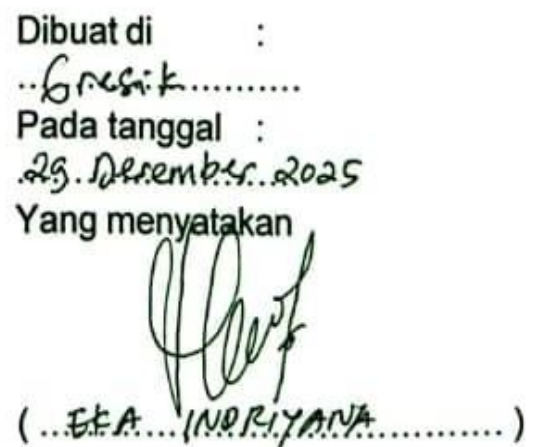 Dibuat di :
..Gresik...........
Pada tanggal :
29. Desember 2025
Yang menyatakan
( ...EKA ... INDRIYANA ............. )